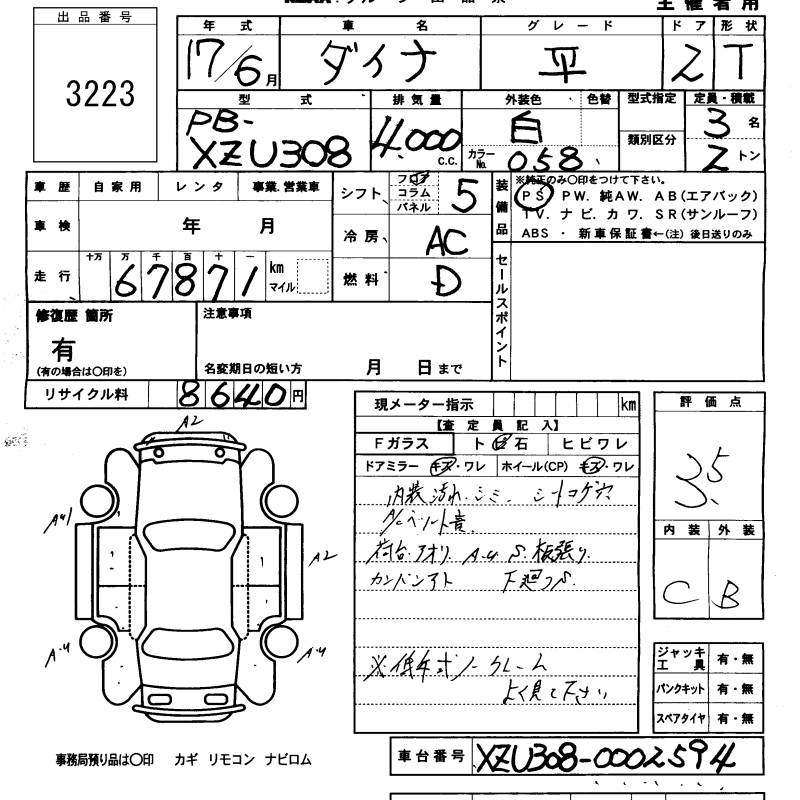 主催者用
出品番号
3223
年式 車名 グレード ドア 形状
17/6月 ダイナ 平 2 T
型式 排気量 外装色 色替 型式指定 定員・積載
PB-
XZU308 4,000 C.C. 白 類別区分 3名
カラーNo. 058 2トン
車歴 自家用 レンタ 事業.営業車
車検 年 月
走行 十万 万 千 百 十 一
67871 km マイル
シフト フロア コラム パネル 5
冷房 AC
燃料 D
装備品 ※純正のみ〇印をつけて下さい。
PS. PW. 純AW. AB(エアバック)
TV. ナビ. カワ. SR(サンルーフ)
ABS ・ 新車保証書←(注) 後日送りのみ
セールスポイント
修復歴 箇所
有
(有の場合は〇印を)
注意事項
名変期日の短い方 月 日まで
リサイクル料 8640円
現メーター指示 km
【査定員記入】
Fガラス ト 石 ヒビワレ
ドアミラー キズ・ワレ ホイール(CP) キズ・ワレ
内装汚れ.シミ. シートコゲ穴
荷台.アオリ A-4 S. 板張り
カンバンアト 下廻りS.
※低年式ノークレーム
よく見て下さい
評価点
3.5
内装 外装
C B
A2
A-4
A2
A-4
A-4
ジャッキ工具 有・無
パンクキット 有・無
スペアタイヤ 有・無
事務局預り品は〇印 カギ リモコン ナビロム
車台番号 XZU308-0002594